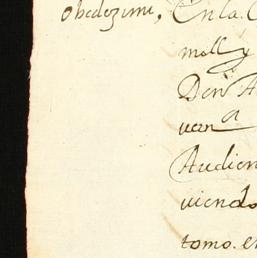 obedezimi,^o En la C
mill y
Den A
uan a
Audien
uiendo
tomo. en